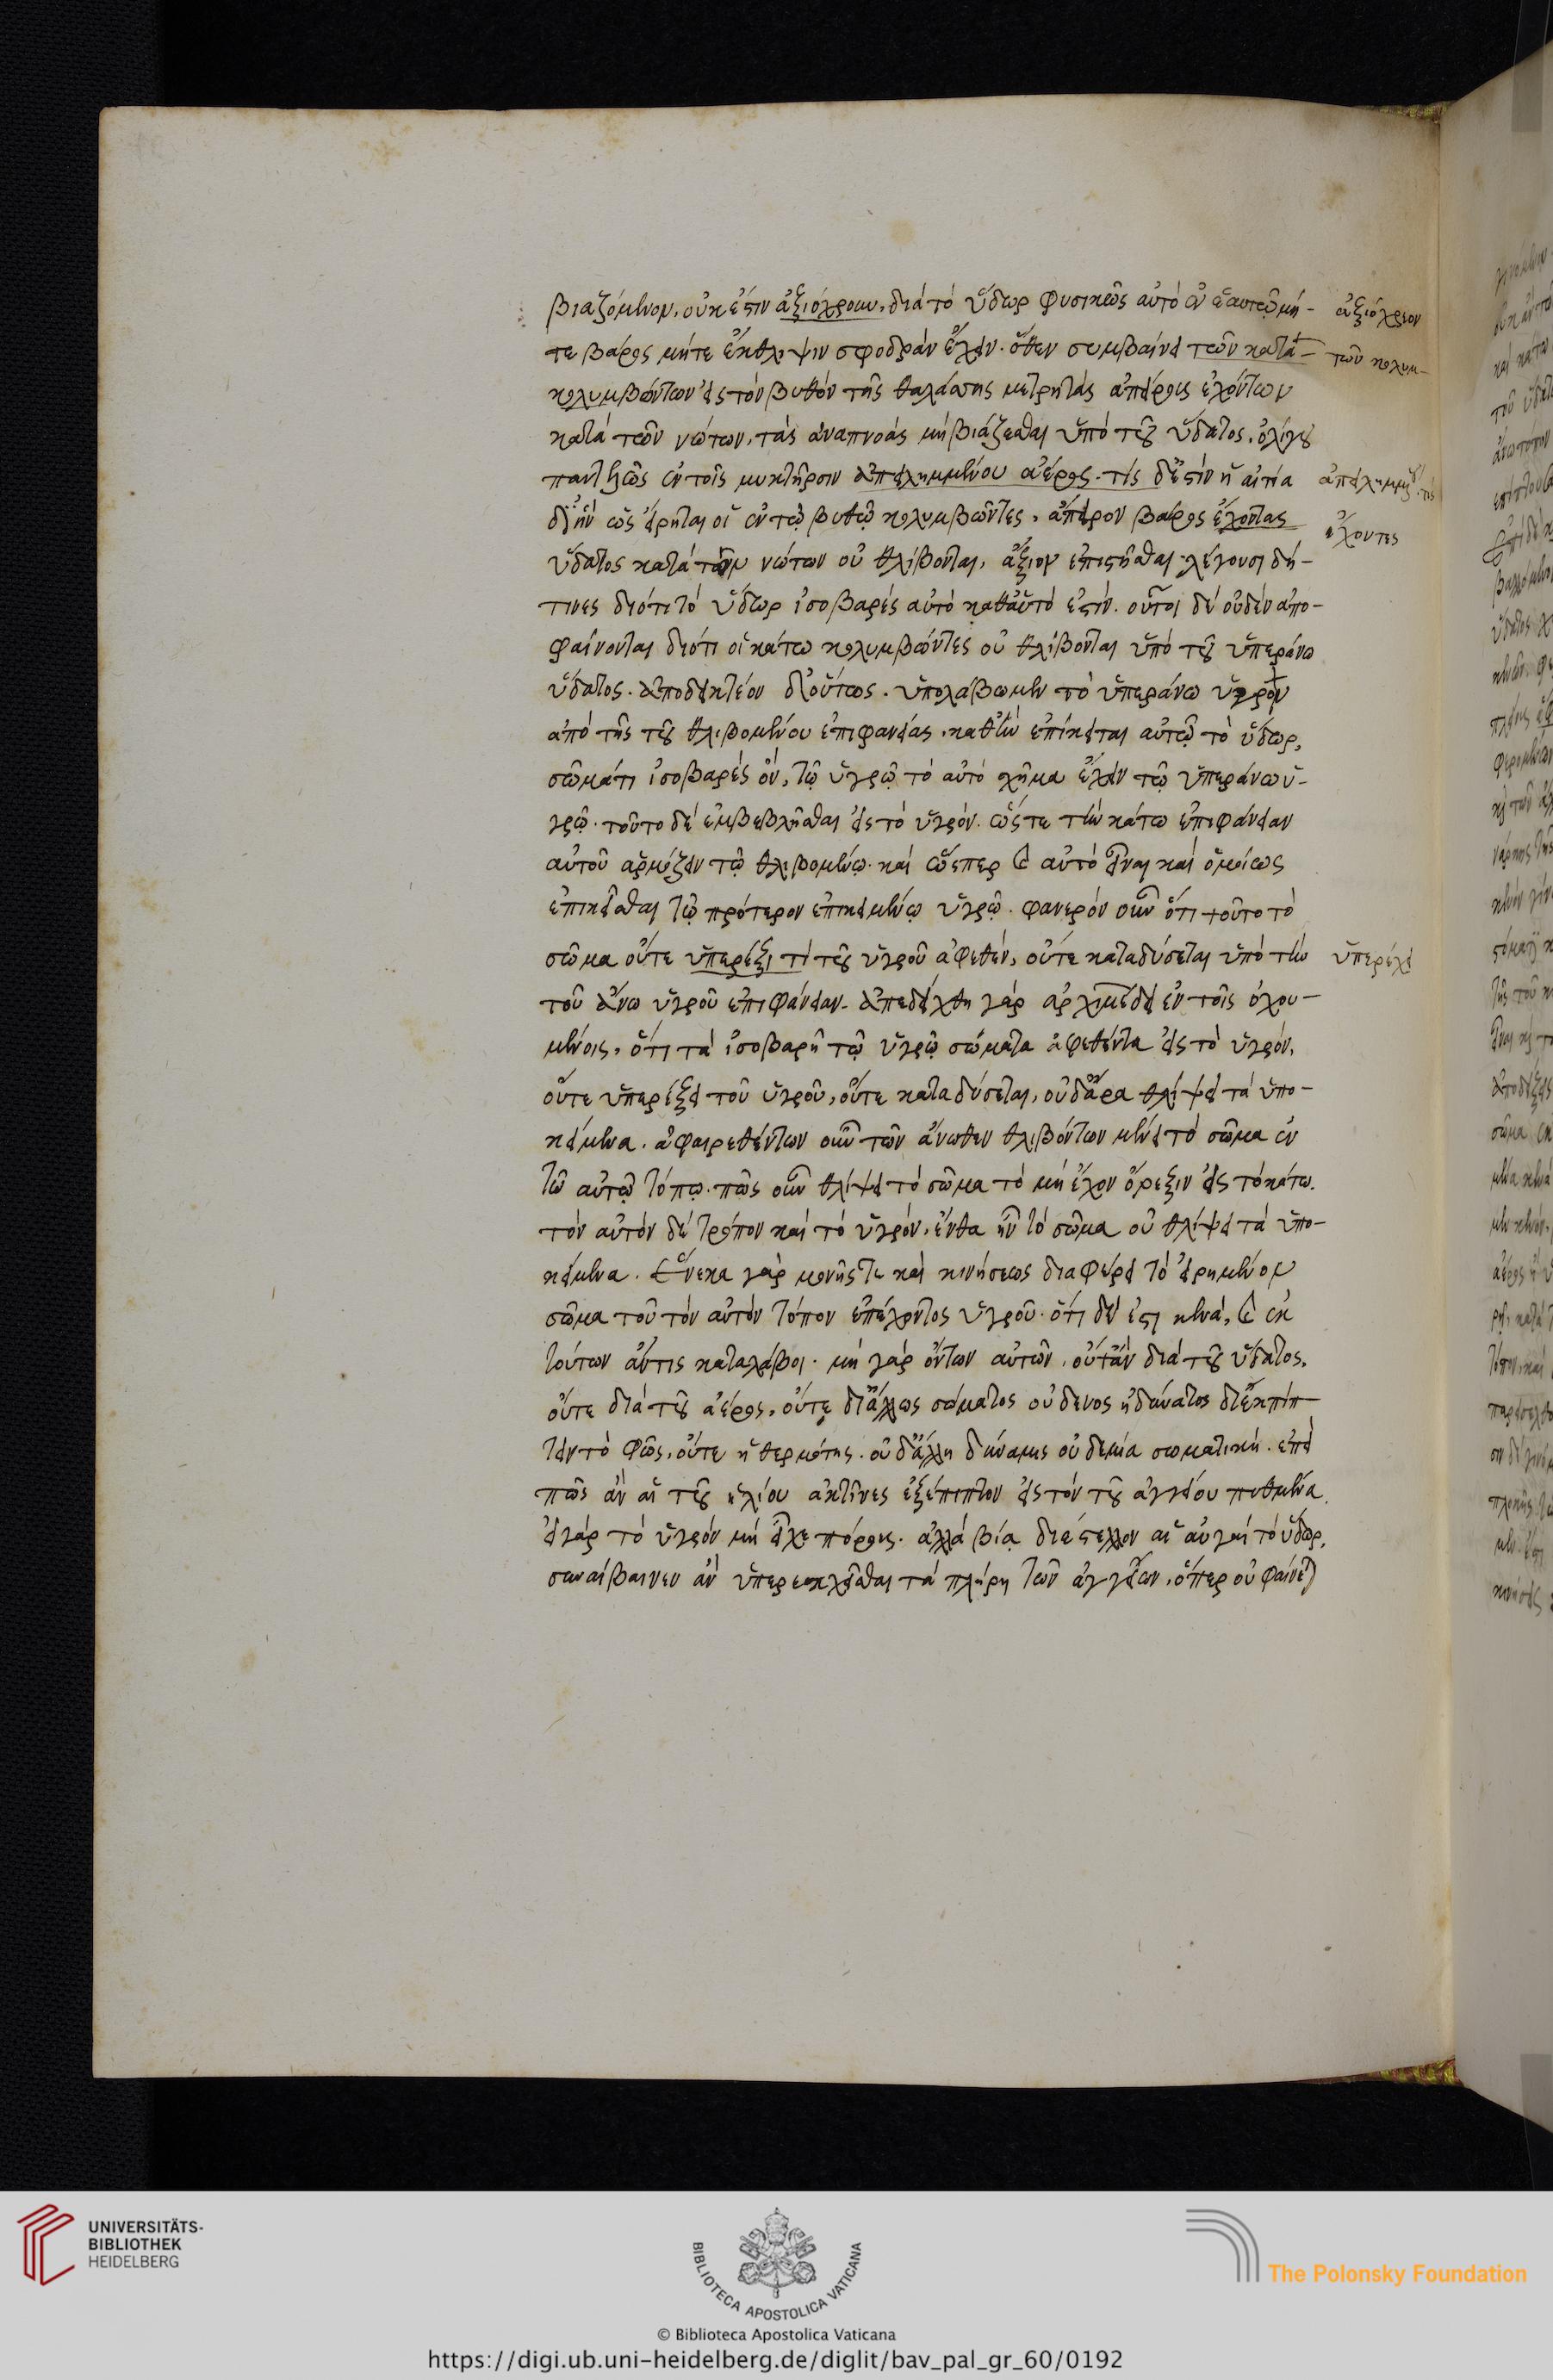 βιαζόμενον, οὐκ ἔστιν ἀξιόχρεων, διὰ τὸ ὕδωρ φυσικῶς αὐτὸ ἐν ἑαυτῷ μή-
ἀξιόχρεον
τε βάρος μήτε ἔκθλιψιν σφοδρὰν ἔχειν. ὅθεν συμβαίνει τῶν κατα-
τῶν κολυμ-
κολυμβώντων εἰς τὸν βυθὸν τῆς θαλάσσης μετρητὰς ἀπείρους ἐχόντων
κατὰ τῶν νώτων, τὰς ἀναπνοὰς μὴ βιάζεσθαι ὑπὸ τοῦ ὕδατος, ὀλίγου
παντελῶς ἐν τοῖς μυκτῆρσιν ἀπειλημμένου ἀέρος. τίς δ' ἐστὶν ἡ αἰτία
ἀπειλημμένου. τίς
δι' ἣν ὡς εἴρηται οἱ ἐν τῷ βυθῷ κολυμβῶντες, ἄπειρον βάρος ἔχοντας
ἔχοντες
ὕδατος κατὰ τῶν νώτων οὐ θλίβονται, ἄξιον ἐπιστῆσαι. λέγουσι δή-
τινες διότι τὸ ὕδωρ ἰσοβαρὲς αὐτὸ καθ' αὑτό ἐστιν. οὗτοι δὲ οὐδὲν ἀπο-
φαίνονται διότι οἱ κάτω κολυμβῶντες οὐ θλίβονται ὑπὸ τοῦ ὑπεράνω
ὕδατος. ἀποδεικτέον δ' οὕτως. ὑπολάβωμεν τὸ ὑπεράνω ὑγρὸν
ἀπὸ τῆς τοῦ θλιβομένου ἐπιφανείας, καθ' ἣν ἐπίκειται αὐτῷ τὸ ὕδωρ,
σώματι ἰσοβαρὲς ὄν, τῷ ὑγρῷ τὸ αὐτὸ σχῆμα ἔχειν τῷ ὑπεράνω ὑ-
γρῷ. τοῦτο δὲ ἐμβεβλῆσθαι εἰς τὸ ὑγρόν. ὥστε τὴν κάτω ἐπιφάνειαν
αὐτοῦ ἁρμόζειν τῷ θλιβομένῳ. καὶ ὥσπερ καὶ αὐτὸ εἶναι καὶ ὁμοίως
ἐπικεῖσθαι τῷ πρότερον ἐπικειμένῳ ὑγρῷ. φανερὸν οὖν ὅτι τοῦτο τὸ
σῶμα οὔτε ὑπερέξει τι τοῦ ὑγροῦ ἀφεθέν, οὔτε καταδύσεται ὑπὸ τὴν
ὑπερέχει
τοῦ ἄνω ὑγροῦ ἐπιφάνειαν. ἀπεδείχθη γὰρ ἀρχιμήδει ἐν τοῖς ὀχου-
μένοις, ὅτι τὰ ἰσοβαρῆ τῷ ὑγρῷ σώματα ἀφεθέντα εἰς τὸ ὑγρόν,
οὔτε ὑπερέξει τοῦ ὑγροῦ, οὔτε καταδύσεται, οὐδ' ἄρα θλίψει τὰ ὑπο-
κείμενα. ἀφαιρεθέντων οὖν τῶν ἄνωθεν θλιβόντων μένει τὸ σῶμα ἐν
τῷ αὐτῷ τόπῳ. πῶς οὖν θλίψει τὸ σῶμα τὸ μὴ ἔχον ὄρεξιν εἰς τὸ κάτω.
τὸν αὐτὸν δὲ τρόπον καὶ τὸ ὑγρόν, ἔνθα ἦν τὸ σῶμα οὐ θλίψει τὰ ὑπο-
κείμενα. ἕνεκα γὰρ μονῆς τε καὶ κινήσεως διαφέρει τὸ εἰρημένον
σῶμα τοῦ τὸν αὐτὸν τόπον ἐπέχοντος ὑγροῦ. ὅτι δέ ἐστι κενά, καὶ ἐκ
τούτων ἄν τις καταλάβοι. μὴ γὰρ ὄντων αὐτῶν, οὔτ' ἂν διὰ τοῦ ὕδατος,
οὔτε διὰ τοῦ ἀέρος, οὔτε δι' ἄλλως σώματος οὐδενος ἠδύνατο διεκπίπ-
τειν τὸ φῶς, οὔτε ἡ θερμότης. οὐδ' ἄλλη δύναμις οὐδεμία σωματική. ἐπεὶ
πῶς ἂν αἱ τοῦ ἡλίου ἀκτῖνες ἐξέπιπτον εἰς τὸν τοῦ ἀγγείου πυθμένα.
εἰ γὰρ τὸ ὑγρὸν μὴ εἶχε πόρους. ἀλλὰ βίᾳ διέστελλον αἱ αὐγαὶ τὸ ὕδωρ,
συναίβαινεν ἂν ὑπερεκχεῖσθαι τὰ πλήρη τῶν ἀγγείων, ὅπερ οὐ φαίνεται
UNIVERSITÄTS-
BIBLIOTHEK
HEIDELBERG
BIBLIOTECA APOSTOLICA VATICANA
The Polonsky Foundation
© Biblioteca Apostolica Vaticana
https://digi.ub.uni-heidelberg.de/diglit/bav_pal_gr_60/0192